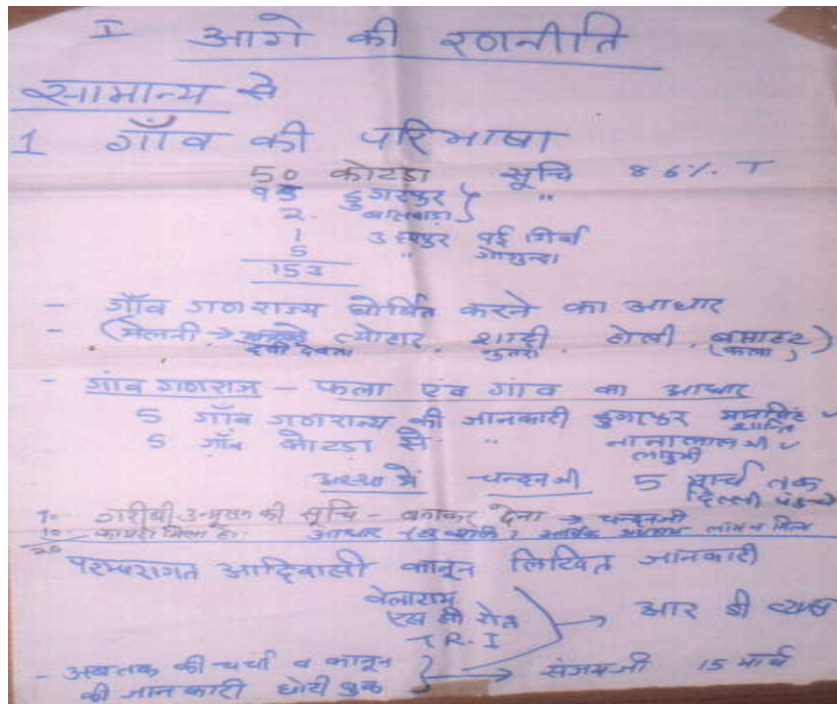 I आगे की रणनीति
सामान्य से
1 गाँव की परिभाषा
50 कोटडा सूचि 86% T
95 डुंगरपुर } "
2 बासवाडा
1 उदयपुर वई गिर्वा
5 " गोगुन्दा
153
- गाँव गणराज्य घोषित करने का आधार
- (मेलनी → त्योहार, शादी, होली,
देवी देवता नुतरा (कला)
- गांव गणराज - फला एंव गांव का आधार
5 गाँव गणराज्य की जानकारी डुंगरपुर मानसिंह ✓
शान्ति
5 गाँव कोटडा से " नानालाल जी ✓
लाडुजी
में चन्दनजी 5 मार्च तक
दिल्ली
10- गरीबी उन्मूलन की सूचि - बनाकर देना → चन्दनजी
10- फायदा मिला है। आधार लाभ न मिला
20
परम्परागत आदिवासी कानून लिखित जानकारी
वेलाराम
एस डी → आर डी व्यास
T.R.I
- अबतक की चर्चा व कानून → संजयजी 15 मार्च
की जानकारी छोटी बुक